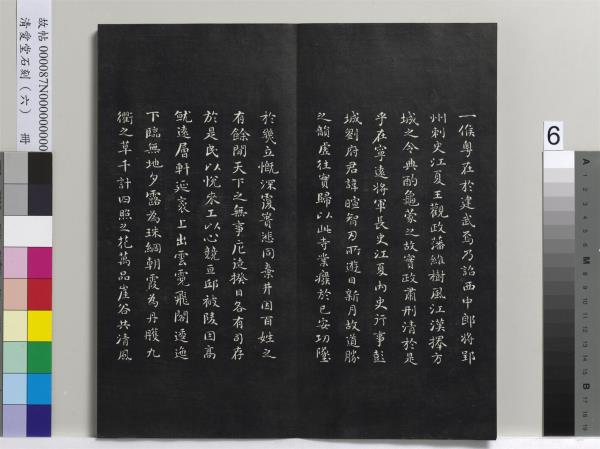 一候粵在於建武焉乃詔西中郎將郢
州刺史江夏王觀政藩維樹風江漢擇方
城之令典酌龜蒙之故實政肅刑清於是
乎在寧遠將軍長史江夏內史行事彭
城劉府君諱暄智刃所遊日新月故道勝
之韻虛往實歸以此寺業癈於已安功墜
於幾立慨深覆簣悲同棄井因百姓之
有餘間天下之無事庀徒揆日各有司存
於是民以悅來工以心競亘邱被陵因高
就遠層軒延袤上出雲霓飛閣逶迤
下臨無地夕露為珠網朝霞為丹雘九
衢之草千計四照之花萬品崖谷共清風
故帖 000087N000000000
清愛堂石刻（六） 冊
6